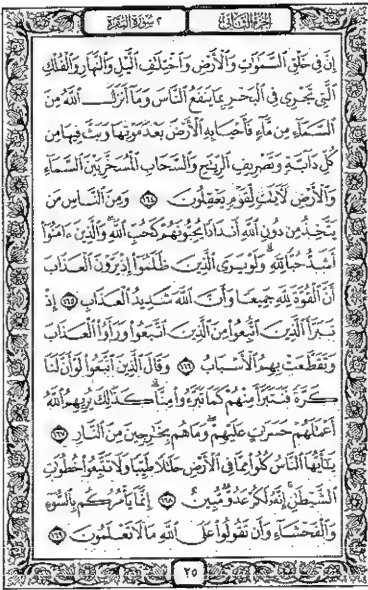 الجزء الثاني ٢ سورة البقرة
إِنَّ فِي خَلْقِ ٱلسَّمَٰوَٰتِ وَٱلْأَرْضِ وَٱخْتِلَٰفِ ٱلَّيْلِ وَٱلنَّهَارِ وَٱلْفُلْكِ
ٱلَّتِي تَجْرِي فِي ٱلْبَحْرِ بِمَا يَنفَعُ ٱلنَّاسَ وَمَآ أَنزَلَ ٱللَّهُ مِنَ
ٱلسَّمَآءِ مِن مَّآءٍ فَأَحْيَا بِهِ ٱلْأَرْضَ بَعْدَ مَوْتِهَا وَبَثَّ فِيهَا مِن
كُلِّ دَآبَّةٍ وَتَصْرِيفِ ٱلرِّيَٰحِ وَٱلسَّحَابِ ٱلْمُسَخَّرِ بَيْنَ ٱلسَّمَآءِ
وَٱلْأَرْضِ لَءَايَٰتٍ لِّقَوْمٍ يَعْقِلُونَ ١٦٤ وَمِنَ ٱلنَّاسِ مَن
يَتَّخِذُ مِن دُونِ ٱللَّهِ أَندَادًا يُحِبُّونَهُمْ كَحُبِّ ٱللَّهِ وَٱلَّذِينَ ءَامَنُوٓا۟
أَشَدُّ حُبًّا لِّلَّهِ وَلَوْ يَرَى ٱلَّذِينَ ظَلَمُوٓا۟ إِذْ يَرَوْنَ ٱلْعَذَابَ
أَنَّ ٱلْقُوَّةَ لِلَّهِ جَمِيعًا وَأَنَّ ٱللَّهَ شَدِيدُ ٱلْعَذَابِ ١٦٥ إِذْ
تَبَرَّأَ ٱلَّذِينَ ٱتُّبِعُوا۟ مِنَ ٱلَّذِينَ ٱتَّبَعُوا۟ وَرَأَوُا۟ ٱلْعَذَابَ
وَتَقَطَّعَتْ بِهِمُ ٱلْأَسْبَابُ ١٦٦ وَقَالَ ٱلَّذِينَ ٱتَّبَعُوا۟ لَوْ أَنَّ لَنَا
كَرَّةً فَنَتَبَرَّأَ مِنْهُمْ كَمَا تَبَرَّءُوا۟ مِنَّا كَذَٰلِكَ يُرِيهِمُ ٱللَّهُ
أَعْمَٰلَهُمْ حَسَرَٰتٍ عَلَيْهِمْ وَمَا هُم بِخَٰرِجِينَ مِنَ ٱلنَّارِ ١٦٧
يَٰٓأَيُّهَا ٱلنَّاسُ كُلُوا۟ مِمَّا فِي ٱلْأَرْضِ حَلَٰلًا طَيِّبًا وَلَا تَتَّبِعُوا۟ خُطُوَٰتِ
ٱلشَّيْطَٰنِ إِنَّهُۥ لَكُمْ عَدُوٌّ مُّبِينٌ ١٦٨ إِنَّمَا يَأْمُرُكُم بِٱلسُّوٓءِ
وَٱلْفَحْشَآءِ وَأَن تَقُولُوا۟ عَلَى ٱللَّهِ مَا لَا تَعْلَمُونَ ١٦٩
٢٥